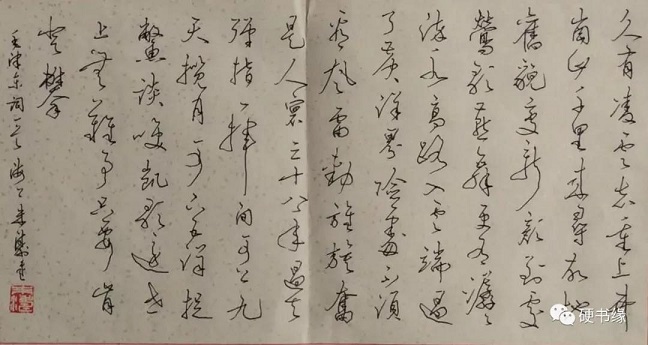 久有凌云志重上井
岗山千里来寻故地
舊貌变新颜到处
莺歌燕舞更有潺々
流水高路入云端过
了黄洋界险处不须
看风雷动旌旗奋
是人寰三十八年过去
弹指一挥间可上九
天揽月可下五洋捉
鳖谈笑凯歌还世
上无难事只要肯
登攀
毛泽东词一首
硬书缘